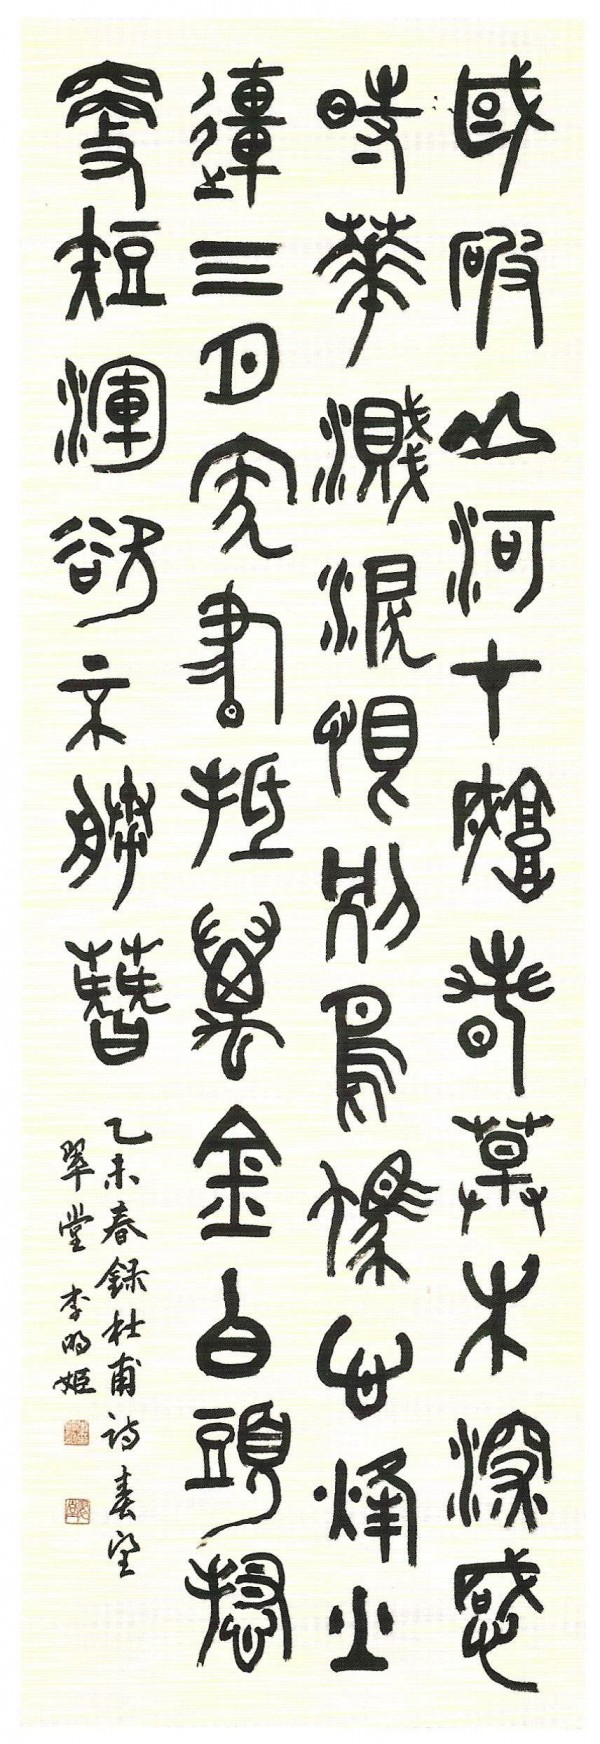 國破山河在城春草木深感
時華濺淚恨別鳥驚心烽火
連三月家書抵萬金白頭搔
更短渾欲不勝簪
乙未春録杜甫詩春望
翠堂 李明姬